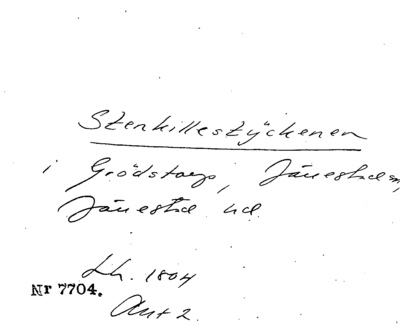 Stenkillestÿckenen
i Grödstorp, Jänestads,
Jänestad hd.
Lh. 1804
Nr 7704.
Akt 2.